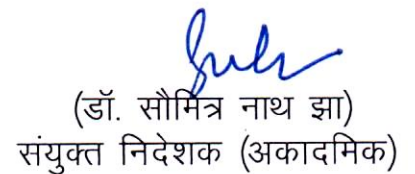 (डॉ. सौमित्र नाथ झा)
संयुक्त निदेशक (अकादमिक)